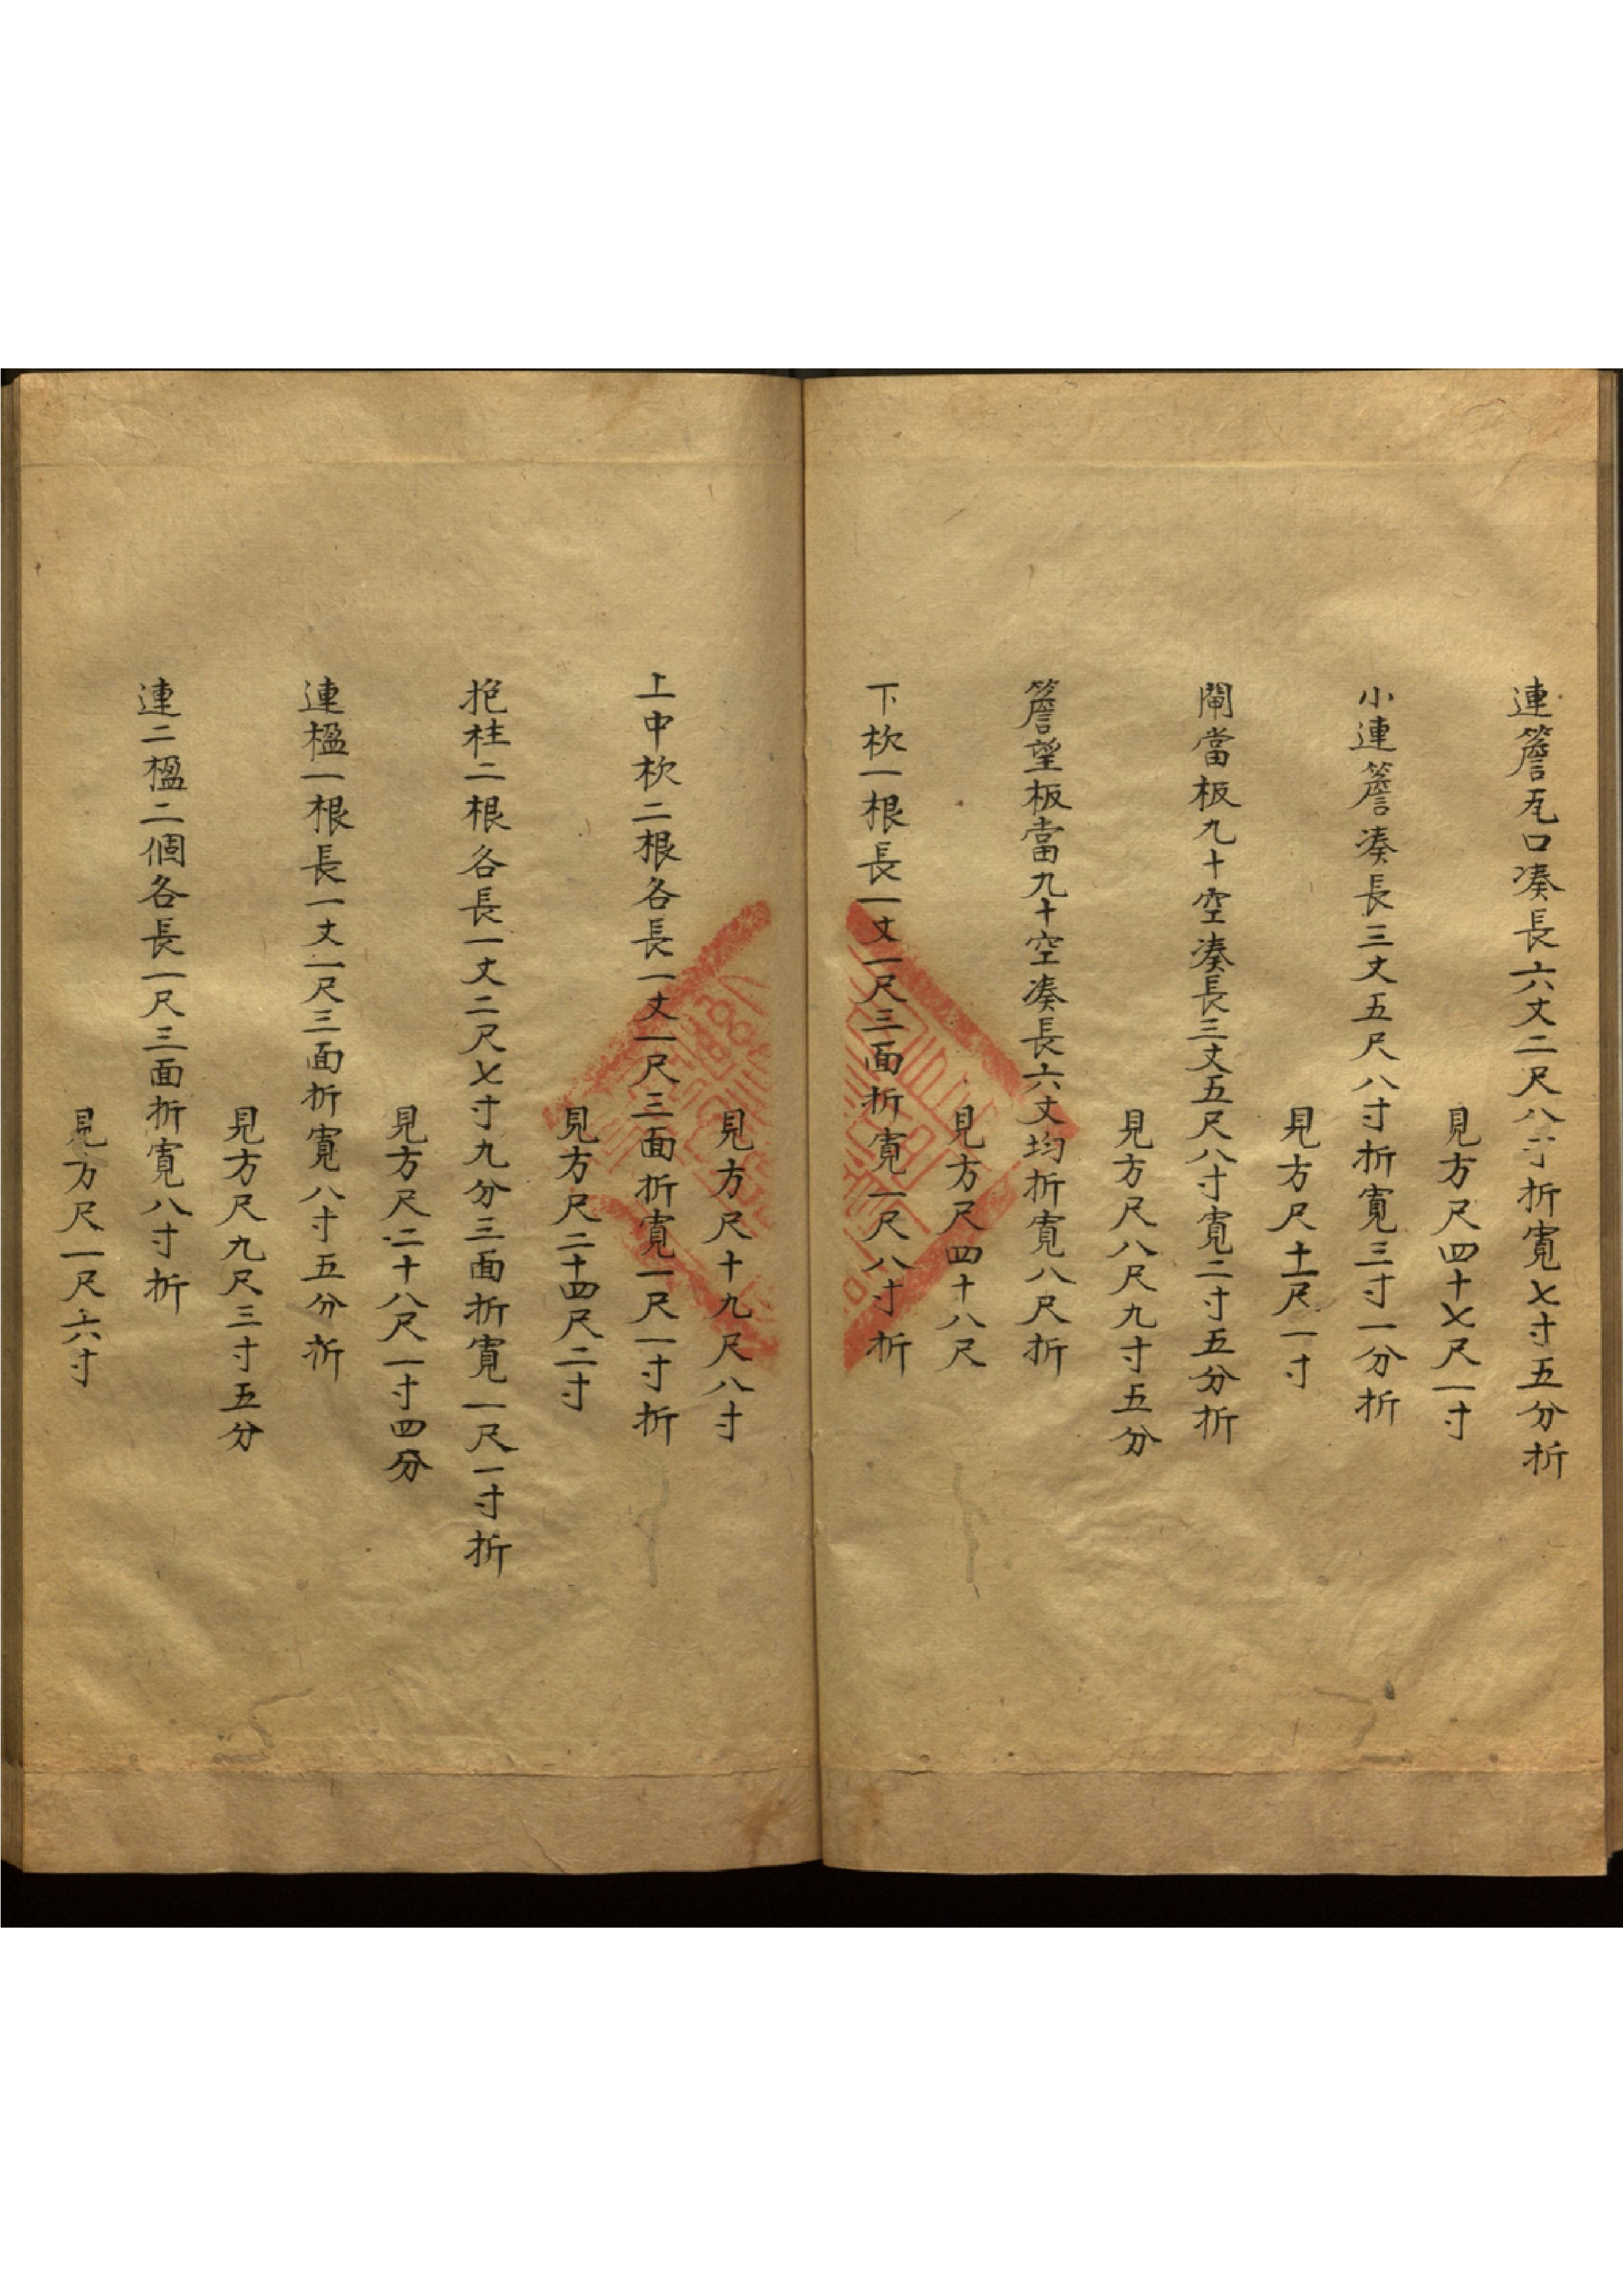 連簷瓦口凑長六丈二尺八寸折寬七寸五分折
見方尺四十七尺一寸
小連簷凑長三丈五尺八寸折寬三寸一分折
見方尺十一尺一寸
閘當板九十空凑長三丈五尺八寸寬二寸五分折
見方尺八尺九寸五分
簷望板當九十空凑長六丈均折寬八尺折
見方尺四十八尺
下枕一根長一丈一尺三面折寬一尺八寸折
見方尺十九尺八寸
上中枕二根各長一丈一尺三面折寬一尺一寸折
見方尺二十四尺二寸
抱柱二根各長一丈二尺七寸九分三面折寬一尺一寸折
見方尺二十八尺一寸四分
連楹一根長一丈一尺三面折寬八寸五分折
見方尺九尺三寸五分
連二楹二個各長一尺三面折寬八寸折
見方尺一尺六寸